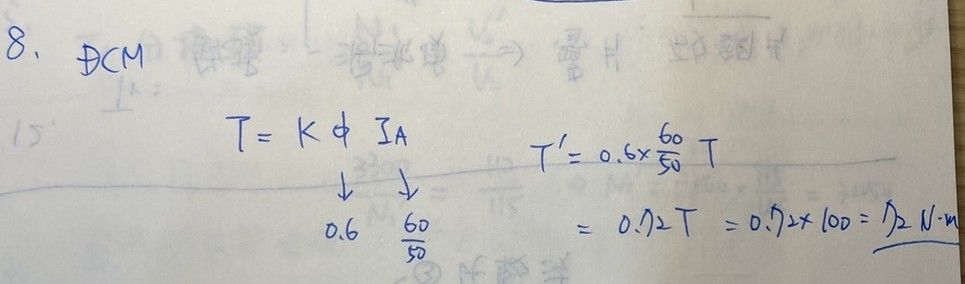 8. DCM
T = K ϕ I_A
↓ ↓
0.6 60/50
T' = 0.6 × 60/50 T
= 0.72 T = 0.72 × 100 = 72 N·m